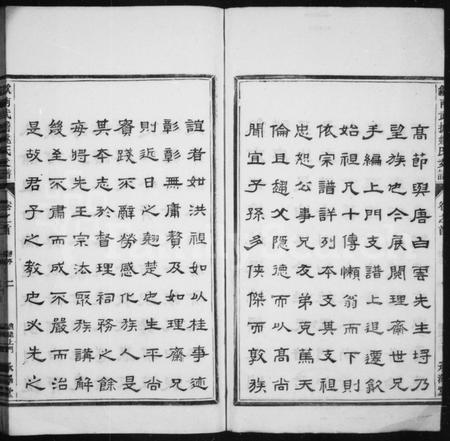 高節與唐白雲先生埒乃
望族也今展閱理齋世兄
手編上門支譜上追遷歙
始祖凡十傳懶翁而下則
依宗譜詳列本支其支
悉恕公事兄友弟克篤天
倫且趨父隱德而以高尚
聞宜子孫多俠傑而敦族
誼者如洪祖如以桂事迹
彰彰無庸贅及如理齋兄
則近日之翹楚也生平尚
實踐不辭勞感化族人是
其本志於督理祠務之餘
每將先王宗法聚族講解
幾至不肅而成不嚴而治
是故君子之教也必先之
卷之首